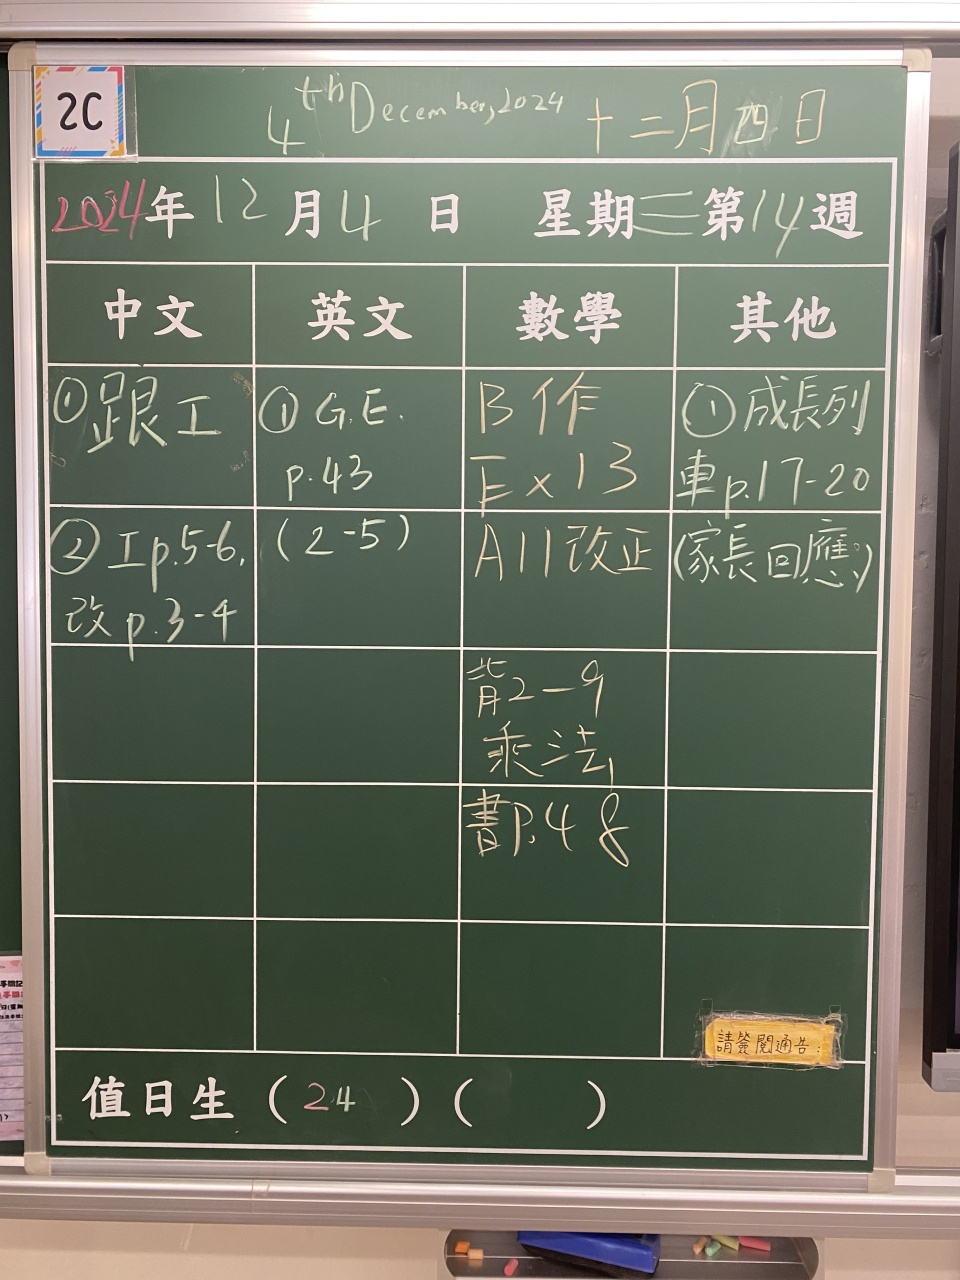 2C
4th December, 2024 十二月四日
2024年12月4日 星期三第14週
中文 英文 數學 其他
①跟工
②工p.5-6,
改p.3-4
① G.E.
p.43
(2-5)
B作
Ex13
A11改正
背2-9
乘法
書P.48
①成長列
車p.17-20
(家長回應)
請簽閱通告：
值日生（24 ）（ ）